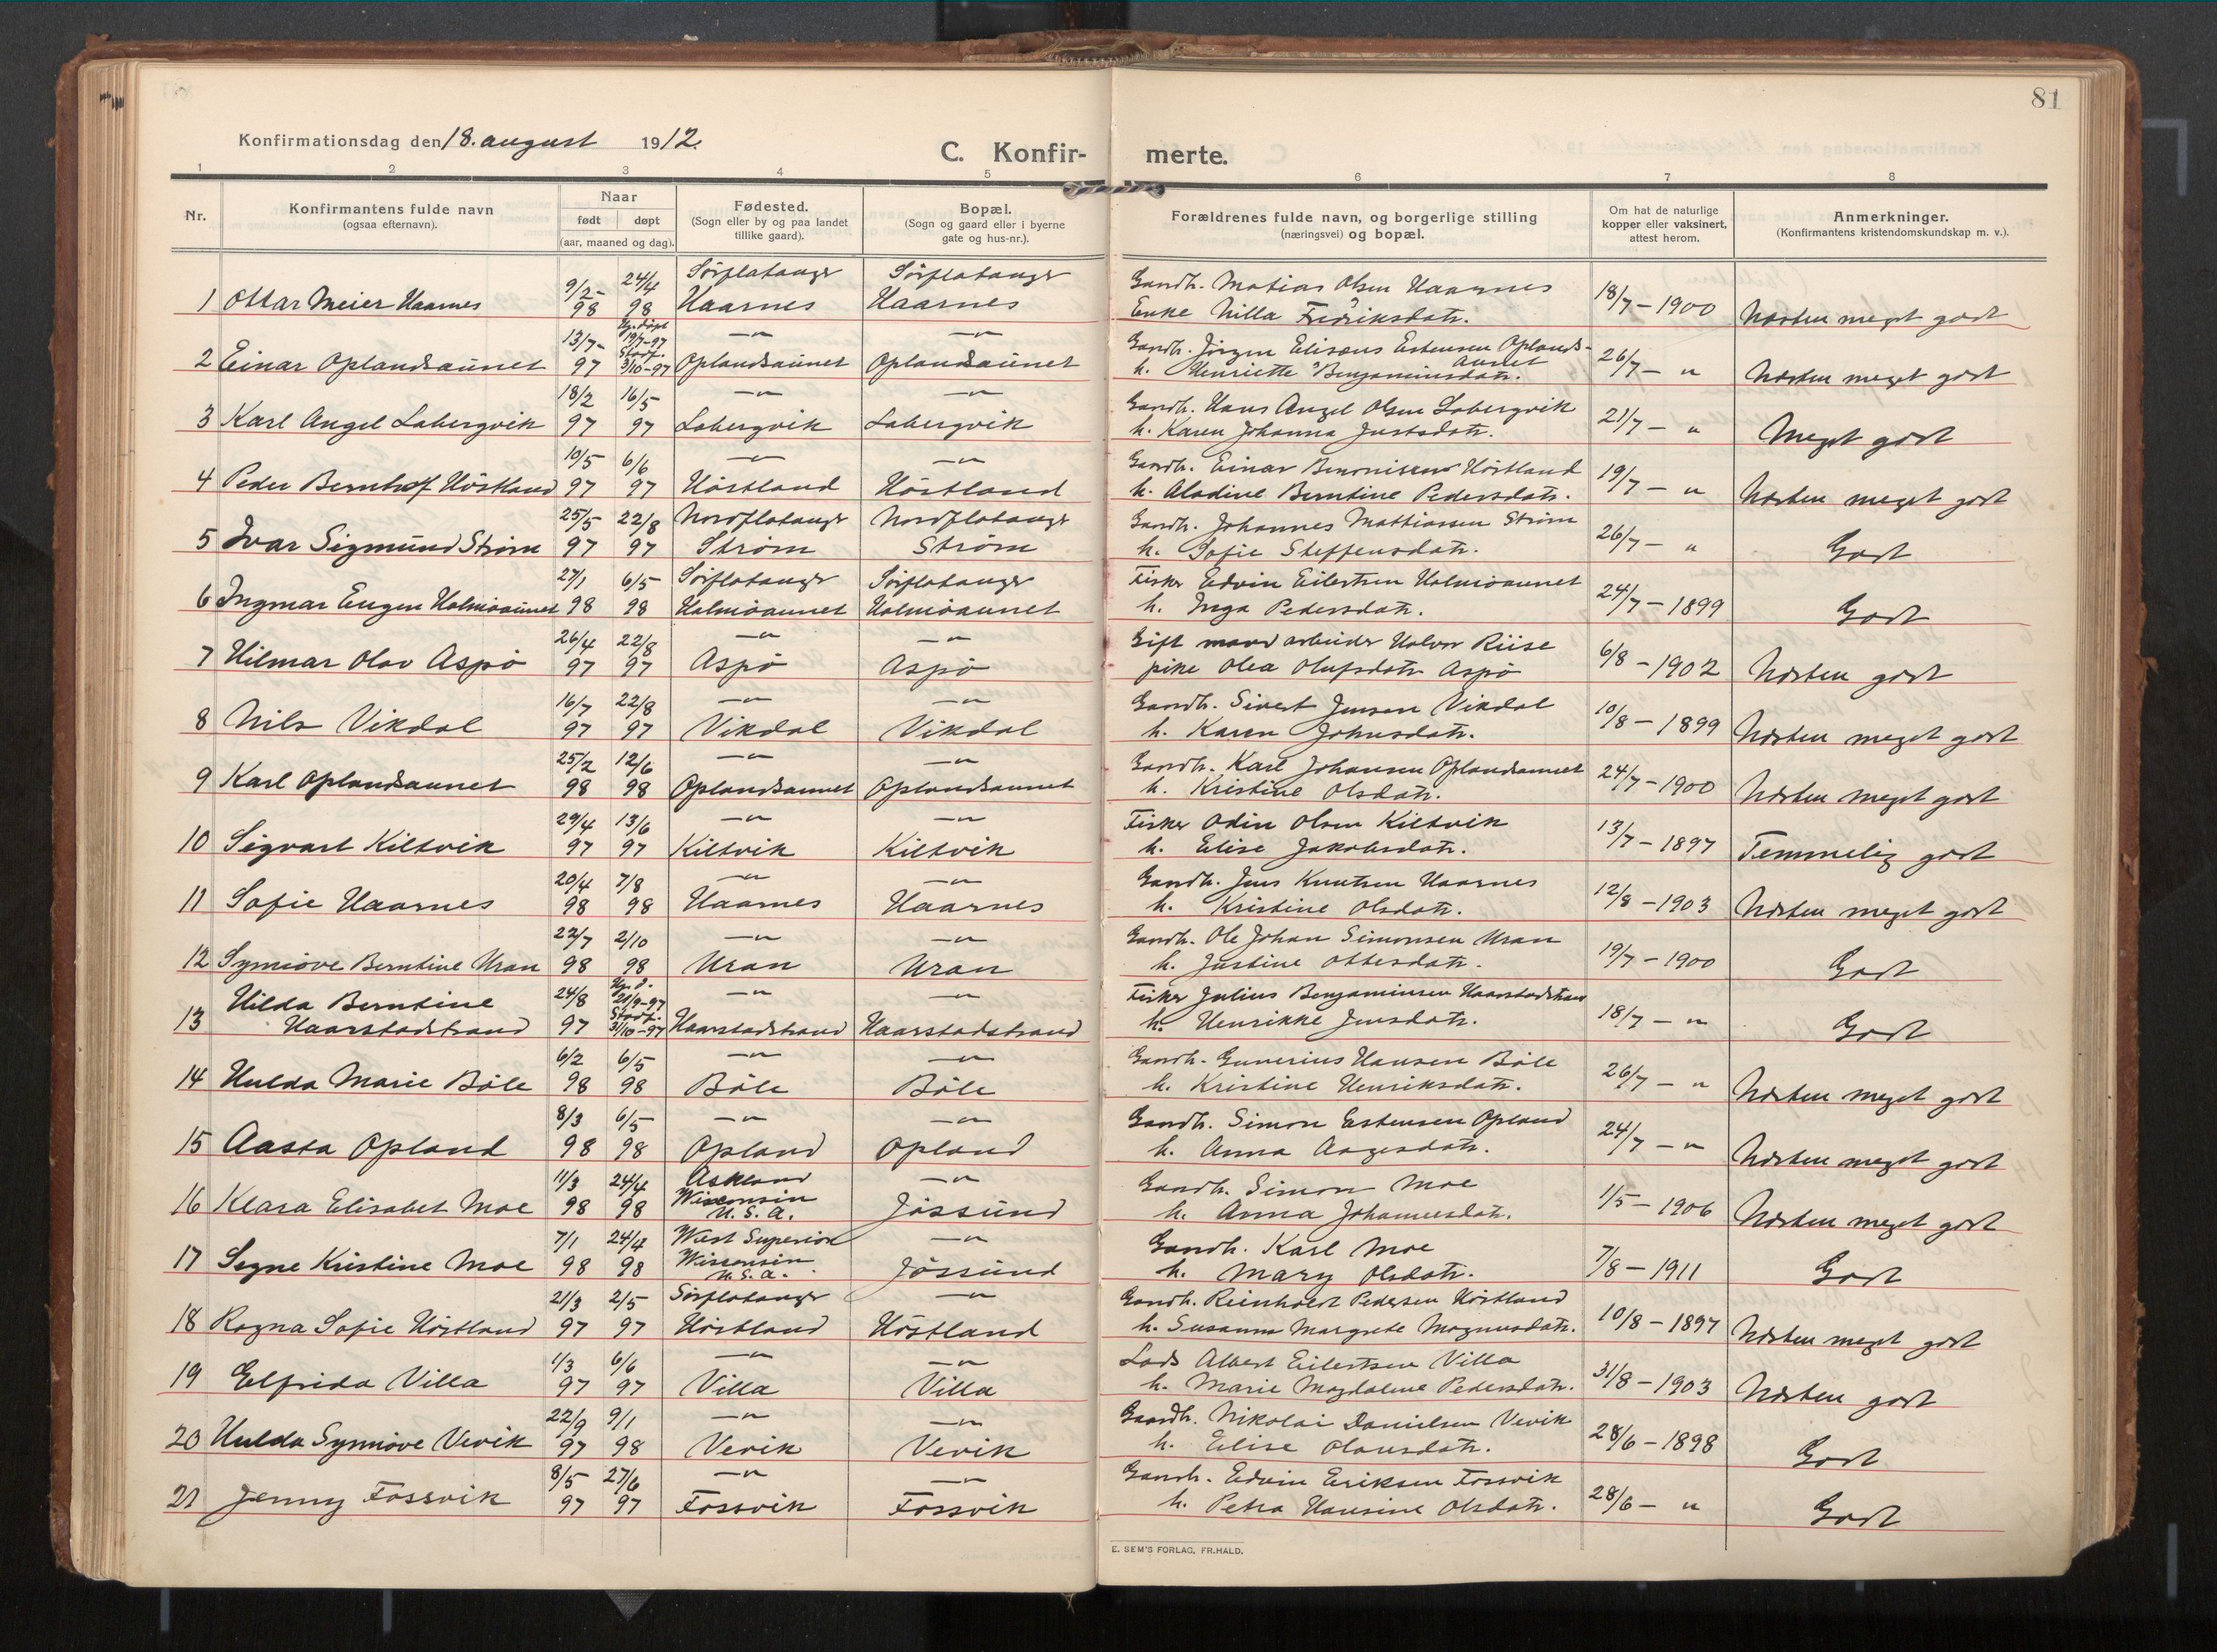 81
Konfirmationsdag den 18. august 1912.
C. Konfir- merte.
1 2 3 4 5 6 7 8
Nr.
Konfirmantens fulde navn
(ogsaa efternavn).
Naar
født døpt
(aar, maaned og dag).
Fødested.
(Sogn eller by og paa landet
tillike gaard).
Bopæl.
(Sogn og gaard eller i byerne
gate og hus-nr.).
Forældrenes fulde navn, og borgerlige stilling
(næringsvei) og bopæl.
Om hat de naturlige
kopper eller vaksinert,
attest herom.
Anmerkninger.
(Konfirmantens kristendomskundskap m. v.).
9/2- 24/4 Sørflatanger Sørflatanger Gaardb. Matias Olsen Haarnes
1 Ottar Meier Haarnes 98 98 Haarnes Haarnes Enke Nilla Fredriksdatr. 18/7 - 1900 Næsten meget godt
13/7- Hj. døpt 19/7-97 Stadf. —"— —"— Gaardb. Jörgen Eliseus Estensen Oplands-
aunet
2 Einar Oplandsaunet 97 3/10-97 Oplandsaunet Oplandsaunet h. Henriette Benjaminsdatr. 26/7 - " Næsten meget godt
18/2 16/5 —"— —"— Gaardb. Hans Angel Olsen Labergvik
3 Karl Angel Labergvik 97 97 Labergvik Labergvik h. Karen Johanna Justsdatr. 21/7 - " Meget godt
10/5 6/6 —"— —"— Gaardb. Einar Benonisen Höstland
4 Peder Bernhof Höstland 97 97 Höstland Höstland h. Aladine Berntine Pedersdatr. 19/7 - " Næsten meget godt
25/5 22/8 Nordflatanger Nordflatanger Gaardb. Johannes Mattiassen Strøm
5 Ivar Sigmund Strøm 97 97 Strøm Strøm h. Sofie Steffensdatr. 26/7 - " Godt
27/1 6/5 Sørflatanger Sørflatanger Fisker Edvin Eilertsen Halmöaunet
6 Ingmar Eugen Halmöaunet 98 98 Halmöaunet Halmöaunet h. Inga Pedersdatr. 24/7 - 1899 Godt
26/4 22/8 —"— —"— Gift mand arbeider Halvor Riise
7 Hilmar Olav Aspö 97 97 Aspö Aspö pike Olea Olufsdatr Aspö 6/8 - 1902 Næsten godt
16/7 22/8 —"— —"— Gaardb. Sivert Jensen Vikdal
8 Nils Vikdal 97 97 Vikdal Vikdal h. Karen Johnsdatr. 10/8 - 1899 Næsten meget godt
25/2 12/6 —"— —"— Gaardb. Karl Johansen Oplandsaunet
9 Karl Oplandsaunet 98 98 Oplandsaunet Oplandsaunet h. Kristine Olsdatr. 24/7 - 1900 Næsten meget godt
29/4 13/6 —"— —"— Fisker Odin Olsen Kiltvik
10 Sigvart Kiltvik 97 97 Kiltvik Kiltvik h. Elise Jakobsdatr. 13/7 - 1897 Temmelig godt
20/4 7/8 —"— —"— Gaardb. Jens Knutsen Haarnes
11 Sofie Haarnes 98 98 Haarnes Haarnes h. Kristine Olsdatr. 12/8 - 1903 Næsten meget godt
22/7 2/10 —"— —"— Gaardb. Ole Johan Simonsen Uran
12 Synnöve Berntine Uran 98 98 Uran Uran h. Justine Ottesdatr. 19/7 - 1900 Godt
Hilda Berntine 24/8 Hj. d. 21/9-97 Stadf. —"— —"— Fisker Julius Benjaminsen Haarstadstrand
13 Haarstadstrand 97 31/10-97 Haarstadstrand Haarstadstrand h. Henrikke Jensdatr. 18/7 - " Godt
6/2 6/5 —"— —"— Gaardb. Gunerius Hansen Böle
14 Hulda Marie Böle 98 98 Böle Böle h. Kristine Henriksdatr. 26/7 - " Næsten meget godt
8/3 6/5 —"— —"— Gaardb. Simon Estensen Opland
15 Aasta Opland 98 98 Opland Opland h. Anna Aagesdatr. 24/7 - " Næsten meget godt
11/3 24/4 Askland Wisconsin —"— Gaardb. Simon Moe
16 Klara Elisabet Moe 98 98 U. S. A. Jössund h. Anna Johannesdatr. 1/5 - 1906 Næsten meget godt
7/1 24/4 West Superior Wisconsin —"— Gaardb. Karl Moe
17 Signe Kristine Moe 98 98 U. S. A. Jössund h. Mary Olsdatr. 7/8 - 1911 Godt
21/3 2/5 Sørflatanger —"— Gaardb. Reinholdt Pedersen Höstland
18 Ragna Sofie Höstland 97 97 Höstland Höstland h. Susanna Margrete Magnusdatr. 10/8 - 1897 Næsten meget godt
1/3 6/6 —"— —"— Lods Albert Eilertsen Villa
19 Elfrida Villa 97 97 Villa Villa h. Marie Magdalene Pedersdatr. 31/8 - 1903 Næsten godt
22/9 9/1 —"— —"— Gaardb. Nikolai Danielsen Vevik
20 Hulda Synnöve Vevik 97 98 Vevik Vevik h. Elise Olausdatr. 28/6 - 1898 Godt
8/5 27/6 —"— —"— Gaardb. Edvin Eriksen Fossvik
21 Jenny Fossvik 97 97 Fossvik Fossvik h. Petra Hansine Olsdatr. 28/6 - " Godt
E. SEM'S FORLAG, FR.HALD.